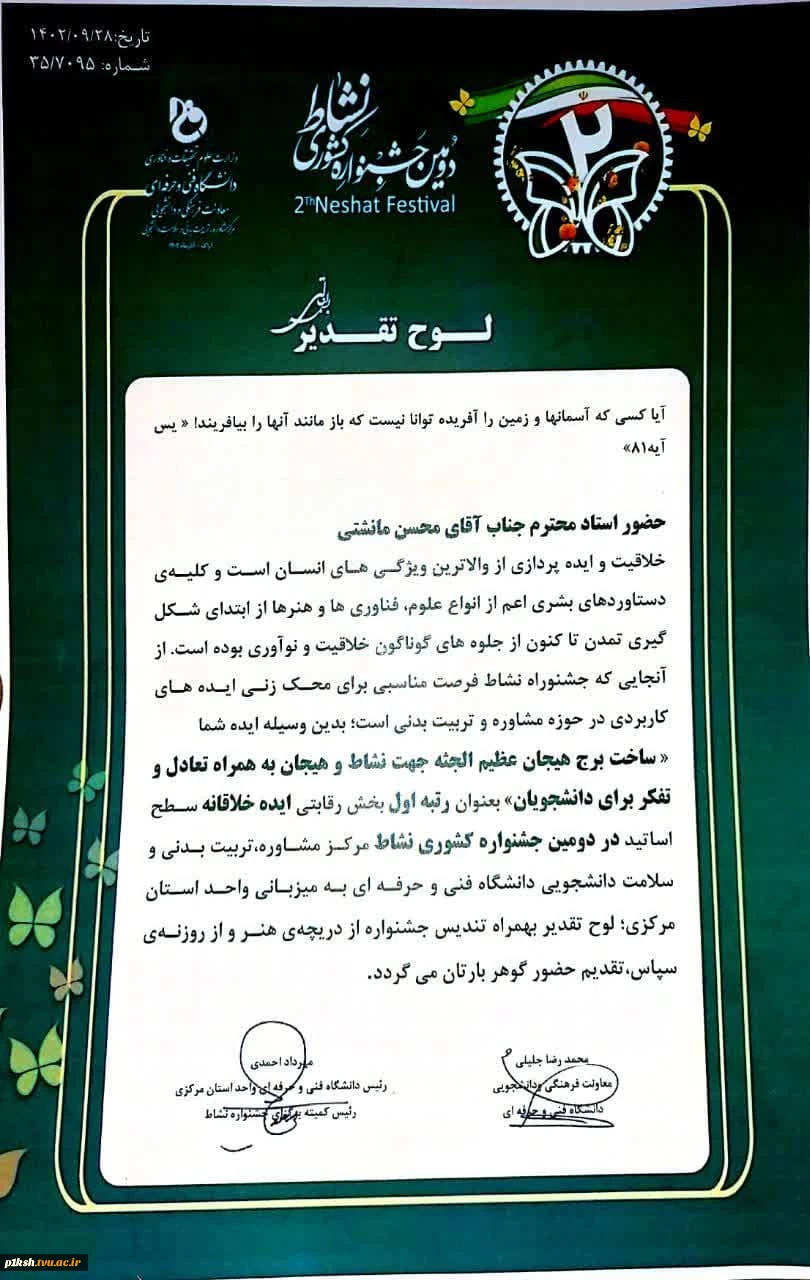 تاریخ:۱۴۰۲/۰۹/۲۸
شماره: ۳۵/۷۰۹۵
وزارت علوم تحقیقات و فناوری
دانشگاه فنی و حرفه‌ای
معاونت فرهنگی و دانشجویی
مرکز مشاوره، تربیت بدنی و سلامت دانشجویی
دومین جشنواره کشوری نشاط
2ᵀʰNeshat Festival
۲
باسمه تعالی
لوح تقدیر
آیا کسی که آسمانها و زمین را آفریده توانا نیست که باز مانند آنها را بیافریند! « یس
آیه۸۱»
حضور استاد محترم جناب آقای محسن مانشتی
خلاقیت و ایده پردازی از والاترین ویژگی های انسان است و کلیه‌ی
دستاوردهای بشری اعم از انواع علوم، فناوری ها و هنرها از ابتدای شکل
گیری تمدن تا کنون از جلوه های گوناگون خلاقیت و نوآوری بوده است. از
آنجایی که جشنوراه نشاط فرصت مناسبی برای محک زنی ایده های
کاربردی در حوزه مشاوره و تربیت بدنی است؛ بدین وسیله ایده شما
« ساخت برج هیجان عظیم الجثه جهت نشاط و هیجان به همراه تعادل و
تفکر برای دانشجویان» بعنوان رتبه اول بخش رقابتی ایده خلاقانه سطح
اساتید در دومین جشنواره کشوری نشاط مرکز مشاوره،تربیت بدنی و
سلامت دانشجویی دانشگاه فنی و حرفه ای به میزبانی واحد استان
مرکزی؛ لوح تقدیر بهمراه تندیس جشنواره از دریچه‌ی هنر و از روزنه‌ی
سپاس،تقدیم حضور گوهر بارتان می گردد.
محمد رضا جلیلی
معاونت فرهنگی ودانشجویی
دانشگاه فنی و حرفه ای
مهرداد احمدی
رئیس دانشگاه فنی و حرفه ای واحد استان مرکزی
رئیس کمیته برگزای جشنواره نشاط
p1ksh.tvu.ac.ir